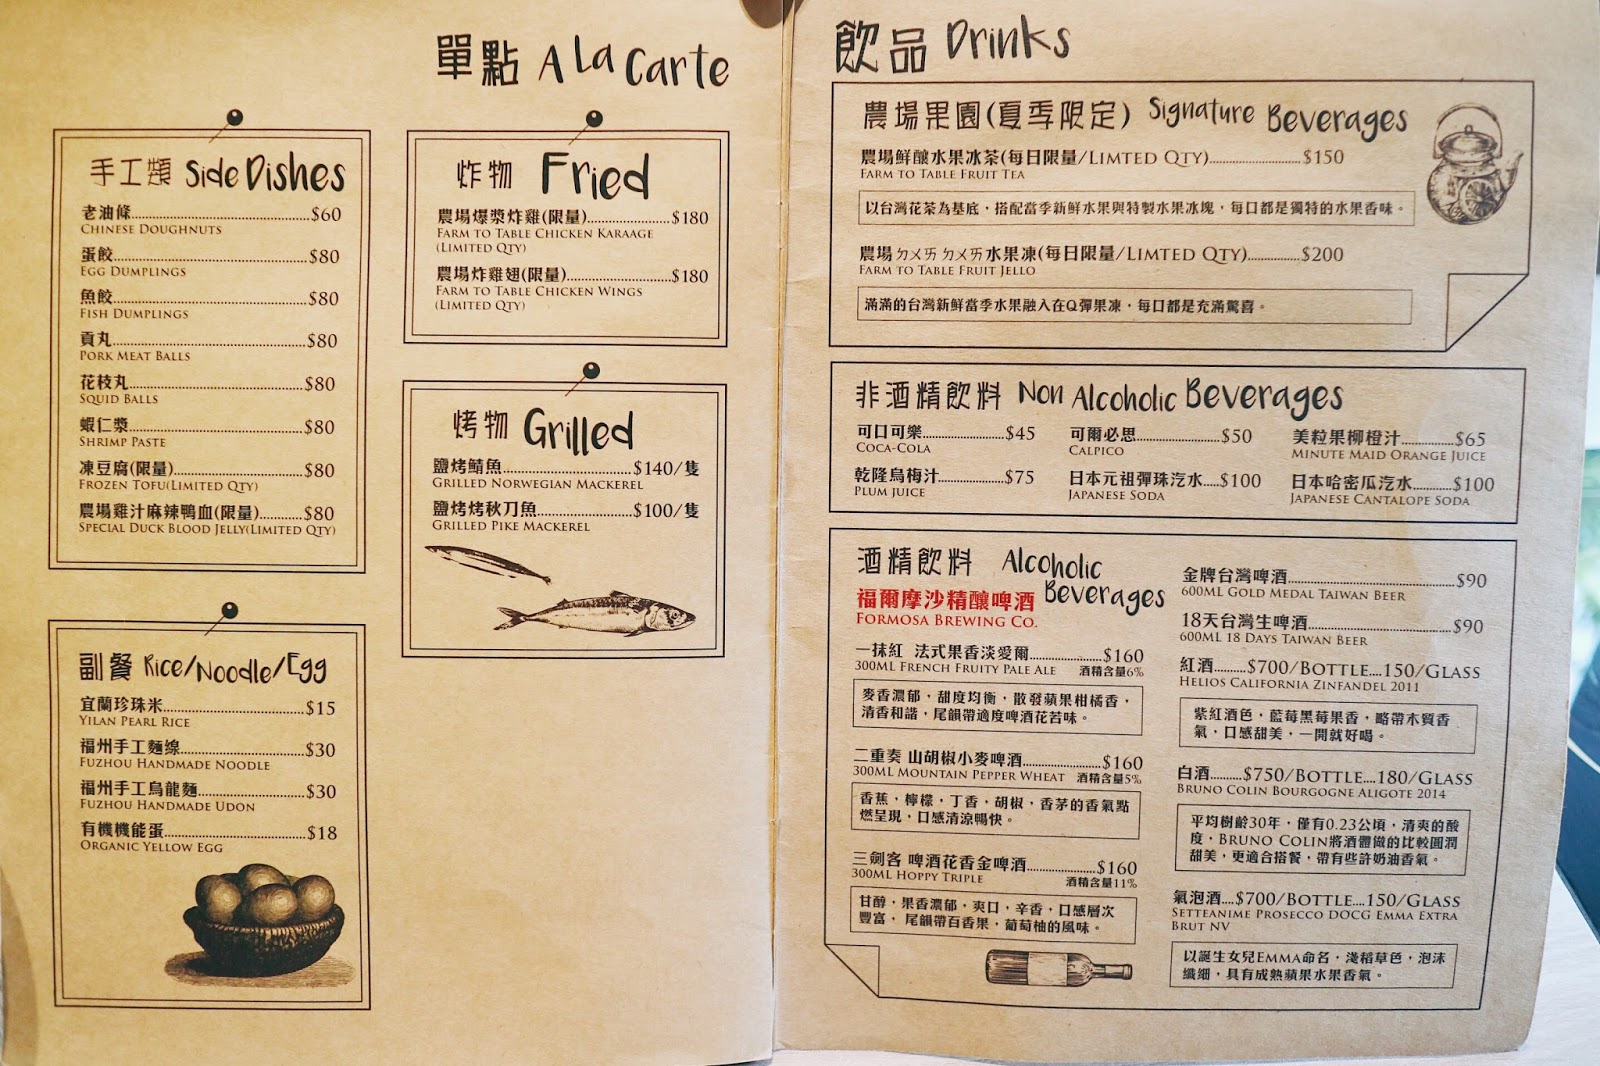 單點 A La Carte
手工類 Side Dishes
老油條......$60
Chinese Doughnuts
蛋餃......$80
Egg Dumplings
魚餃......$80
Fish Dumplings
貢丸......$80
Pork Meat Balls
花枝丸......$80
Squid Balls
蝦仁漿......$80
Shrimp Paste
凍豆腐(限量)......$80
Frozen Tofu(Limited Qty)
農場雞汁麻辣鴨血(限量)......$80
Special Duck Blood Jelly(Limited Qty)
副餐 Rice/Noodle/Egg
宜蘭珍珠米......$15
Yilan Pearl Rice
福州手工麵線......$30
Fuzhou Handmade Noodle
福州手工烏龍麵......$30
Fuzhou Handmade Udon
有機機能蛋......$18
Organic Yellow Egg
炸物 Fried
農場爆漿炸雞(限量)......$180
Farm to Table Chicken Karaage
(Limited Qty)
農場炸雞翅(限量)......$180
Farm to Table Chicken Wings
(Limited Qty)
烤物 Grilled
鹽烤鯖魚......$140/隻
Grilled Norwegian Mackerel
鹽烤烤秋刀魚......$100/隻
Grilled Pike Mackerel
飲品 Drinks
農場果園(夏季限定) Signature Beverages
農場鮮釀水果冰茶(每日限量/Limted Qty)......$150
Farm to Table Fruit Tea
以台灣花茶為基底，搭配當季新鮮水果與特製水果冰塊，每口都是獨特的水果香味。
農場ㄉㄨㄞㄉㄨㄞ水果凍(每日限量/Limted Qty)......$200
Farm to Table Fruit Jello
滿滿的台灣新鮮當季水果融入在Q彈果凍，每口都是充滿驚喜。
非酒精飲料 Non Alcoholic Beverages
可口可樂......$45
Coca-Cola
可爾必思......$50
Calpico
美粒果柳橙汁......$65
Minute Maid Orange Juice
乾隆烏梅汁......$75
Plum juice
日本元祖彈珠汽水....$100
Japanese Soda
日本哈密瓜汽水....$100
Japanese Cantalope Soda
酒精飲料 Alcoholic Beverages
福爾摩沙精釀啤酒
Formosa Brewing Co.
一抹紅 法式果香淡愛爾......$160
300ml French Fruity Pale Ale 酒精含量6%
麥香濃郁，甜度均衡，散發蘋果柑橘香，
清香和諧，尾韻帶適度啤酒花苦味。
二重奏 山胡椒小麥啤酒......$160
300ml Mountain Pepper Wheat 酒精含量5%
香蕉，檸檬，丁香，胡椒，香茅的香氣點
燃呈現，口感清涼暢快。
三劍客 啤酒花香金啤酒......$160
300ml Hoppy Triple 酒精含量11%
甘醇，果香濃郁，爽口，辛香，口感層次
豐富，尾韻帶百香果，葡萄柚的風味。
金牌台灣啤酒......$90
600ml Gold Medal Taiwan Beer
18天台灣生啤酒......$90
600ml 18 Days Taiwan Beer
紅酒.........$700/Bottle....150/Glass
Helios California Zinfandel 2011
紫紅酒色，藍莓黑莓果香，略帶木質香
氣，口感甜美，一開就好喝。
白酒.........$750/Bottle....180/Glass
Bruno Colin Bourgogne Aligote 2014
平均樹齡30年，僅有0.23公頃，清爽的酸
度，Bruno Colin將酒體做的比較圓潤
甜美，更適合搭餐，帶有些許奶油香氣。
氣泡酒....$700/Bottle....150/Glass
Setteanime Prosecco DOCG Emma Extra
Brut NV
以誕生女兒EMMA命名，淺稻草色，泡沫
纖細，具有成熟蘋果水果香氣。